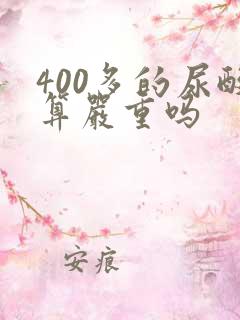 400多的尿酸
算嚴重吗
安痕